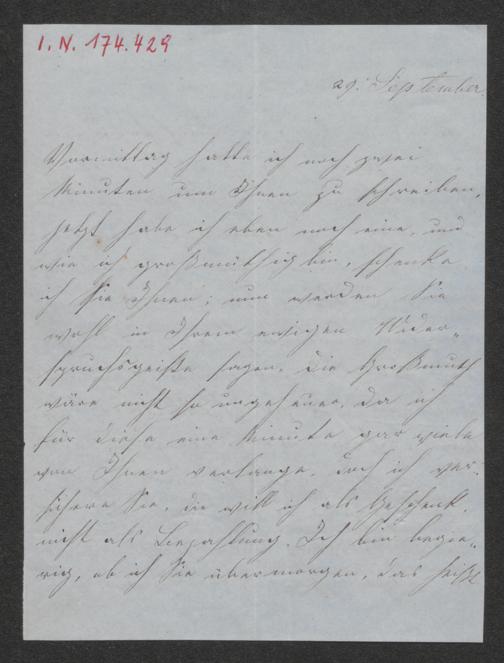 I. N. 174.429
29. September.
Vormittag hatte ich noch zwei
Minuten um Ihnen zu schreiben,
jetzt habe ich eben noch eine, und
wie ich großmüthig bin, schenke
ich sie Ihnen; nun werden Sie
wohl in Ihrem ewigen Wider-
spruchsgeiste sagen, die Großmuth
wäre nicht so ungeheuer, da ich
für diese eine Minute gar viele
von Ihnen verlange, doch ich ver-
sichere Sie, die will ich als Geschenk,
nicht als Bezahlung. Ich bin begie-
rig, ob ich Sie übermorgen, das heißt